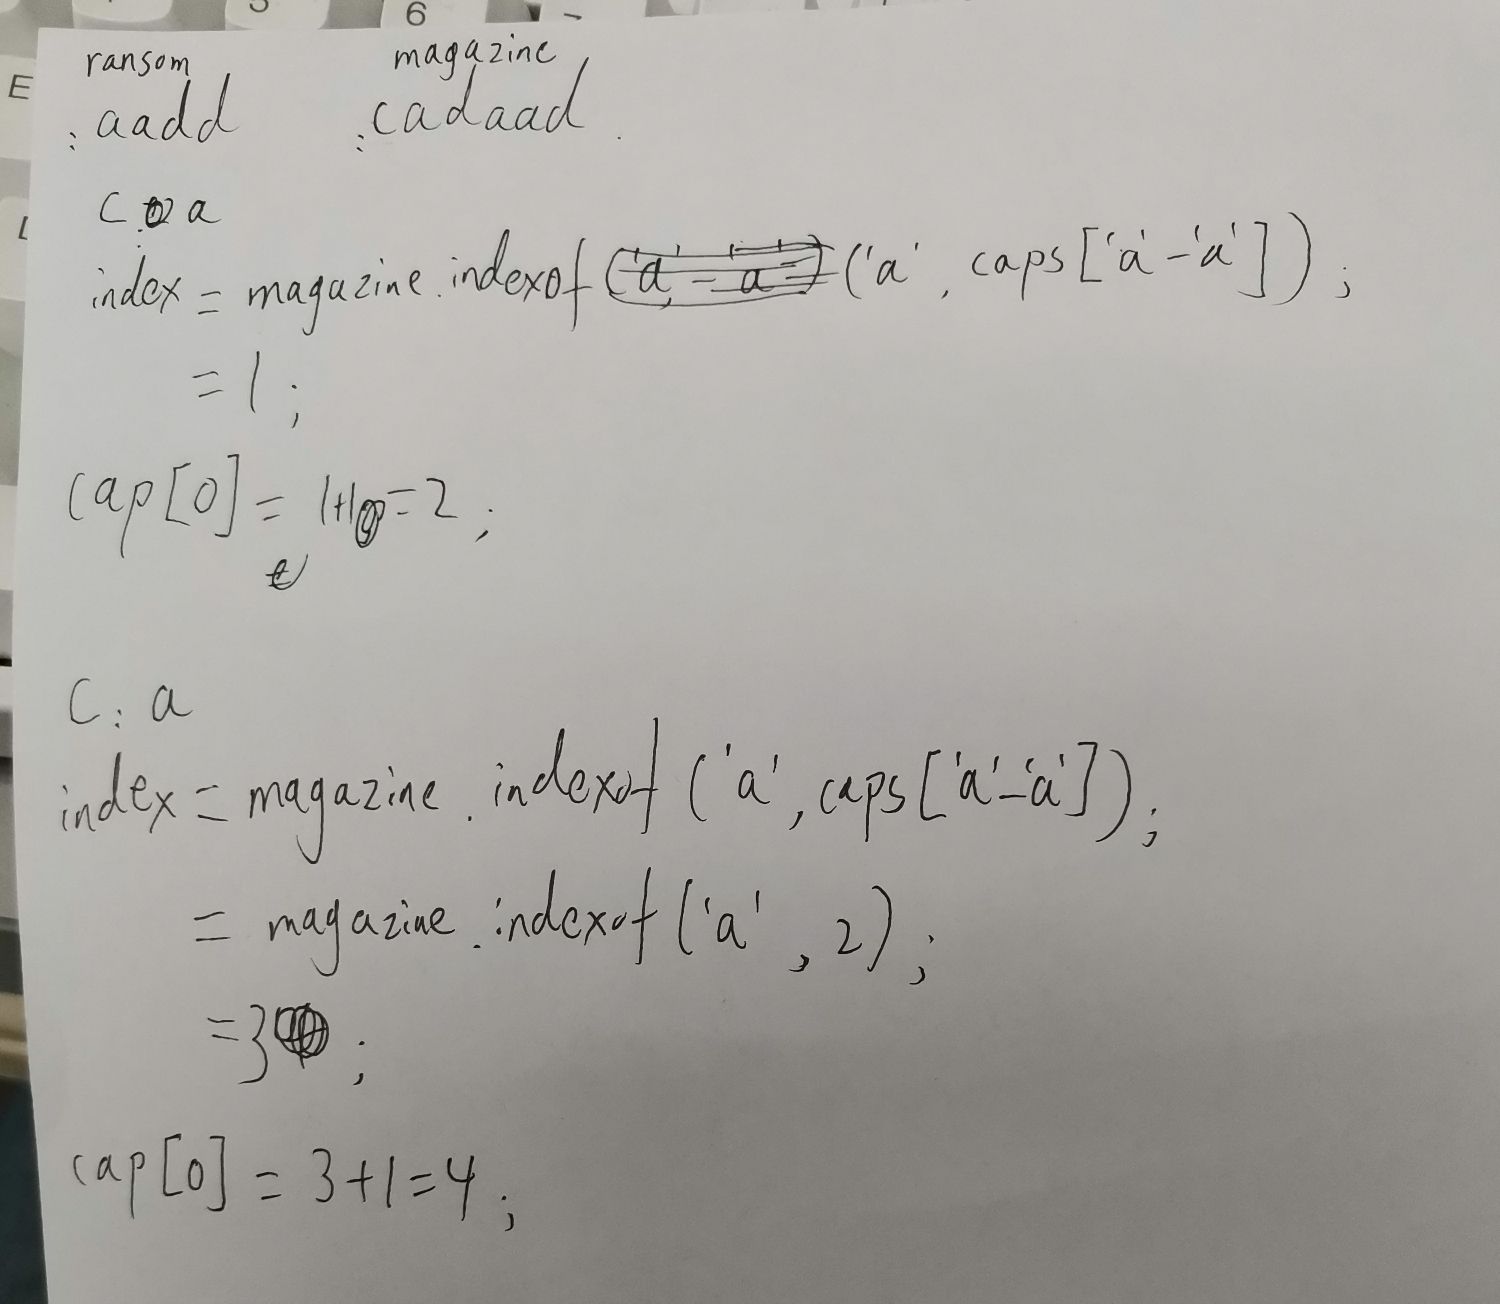 6
E
ransom magazine
: aadd : cadaad .
C a
index = magazine.indexof ('a', caps['a'-'a']);
= 1;
cap[0] = 1+1=2;
C: a
index = magazine.indexof ('a', caps['a'-'a']);
= magazine.indexof ('a', 2);
=3 ;
cap[0] = 3+1=4;